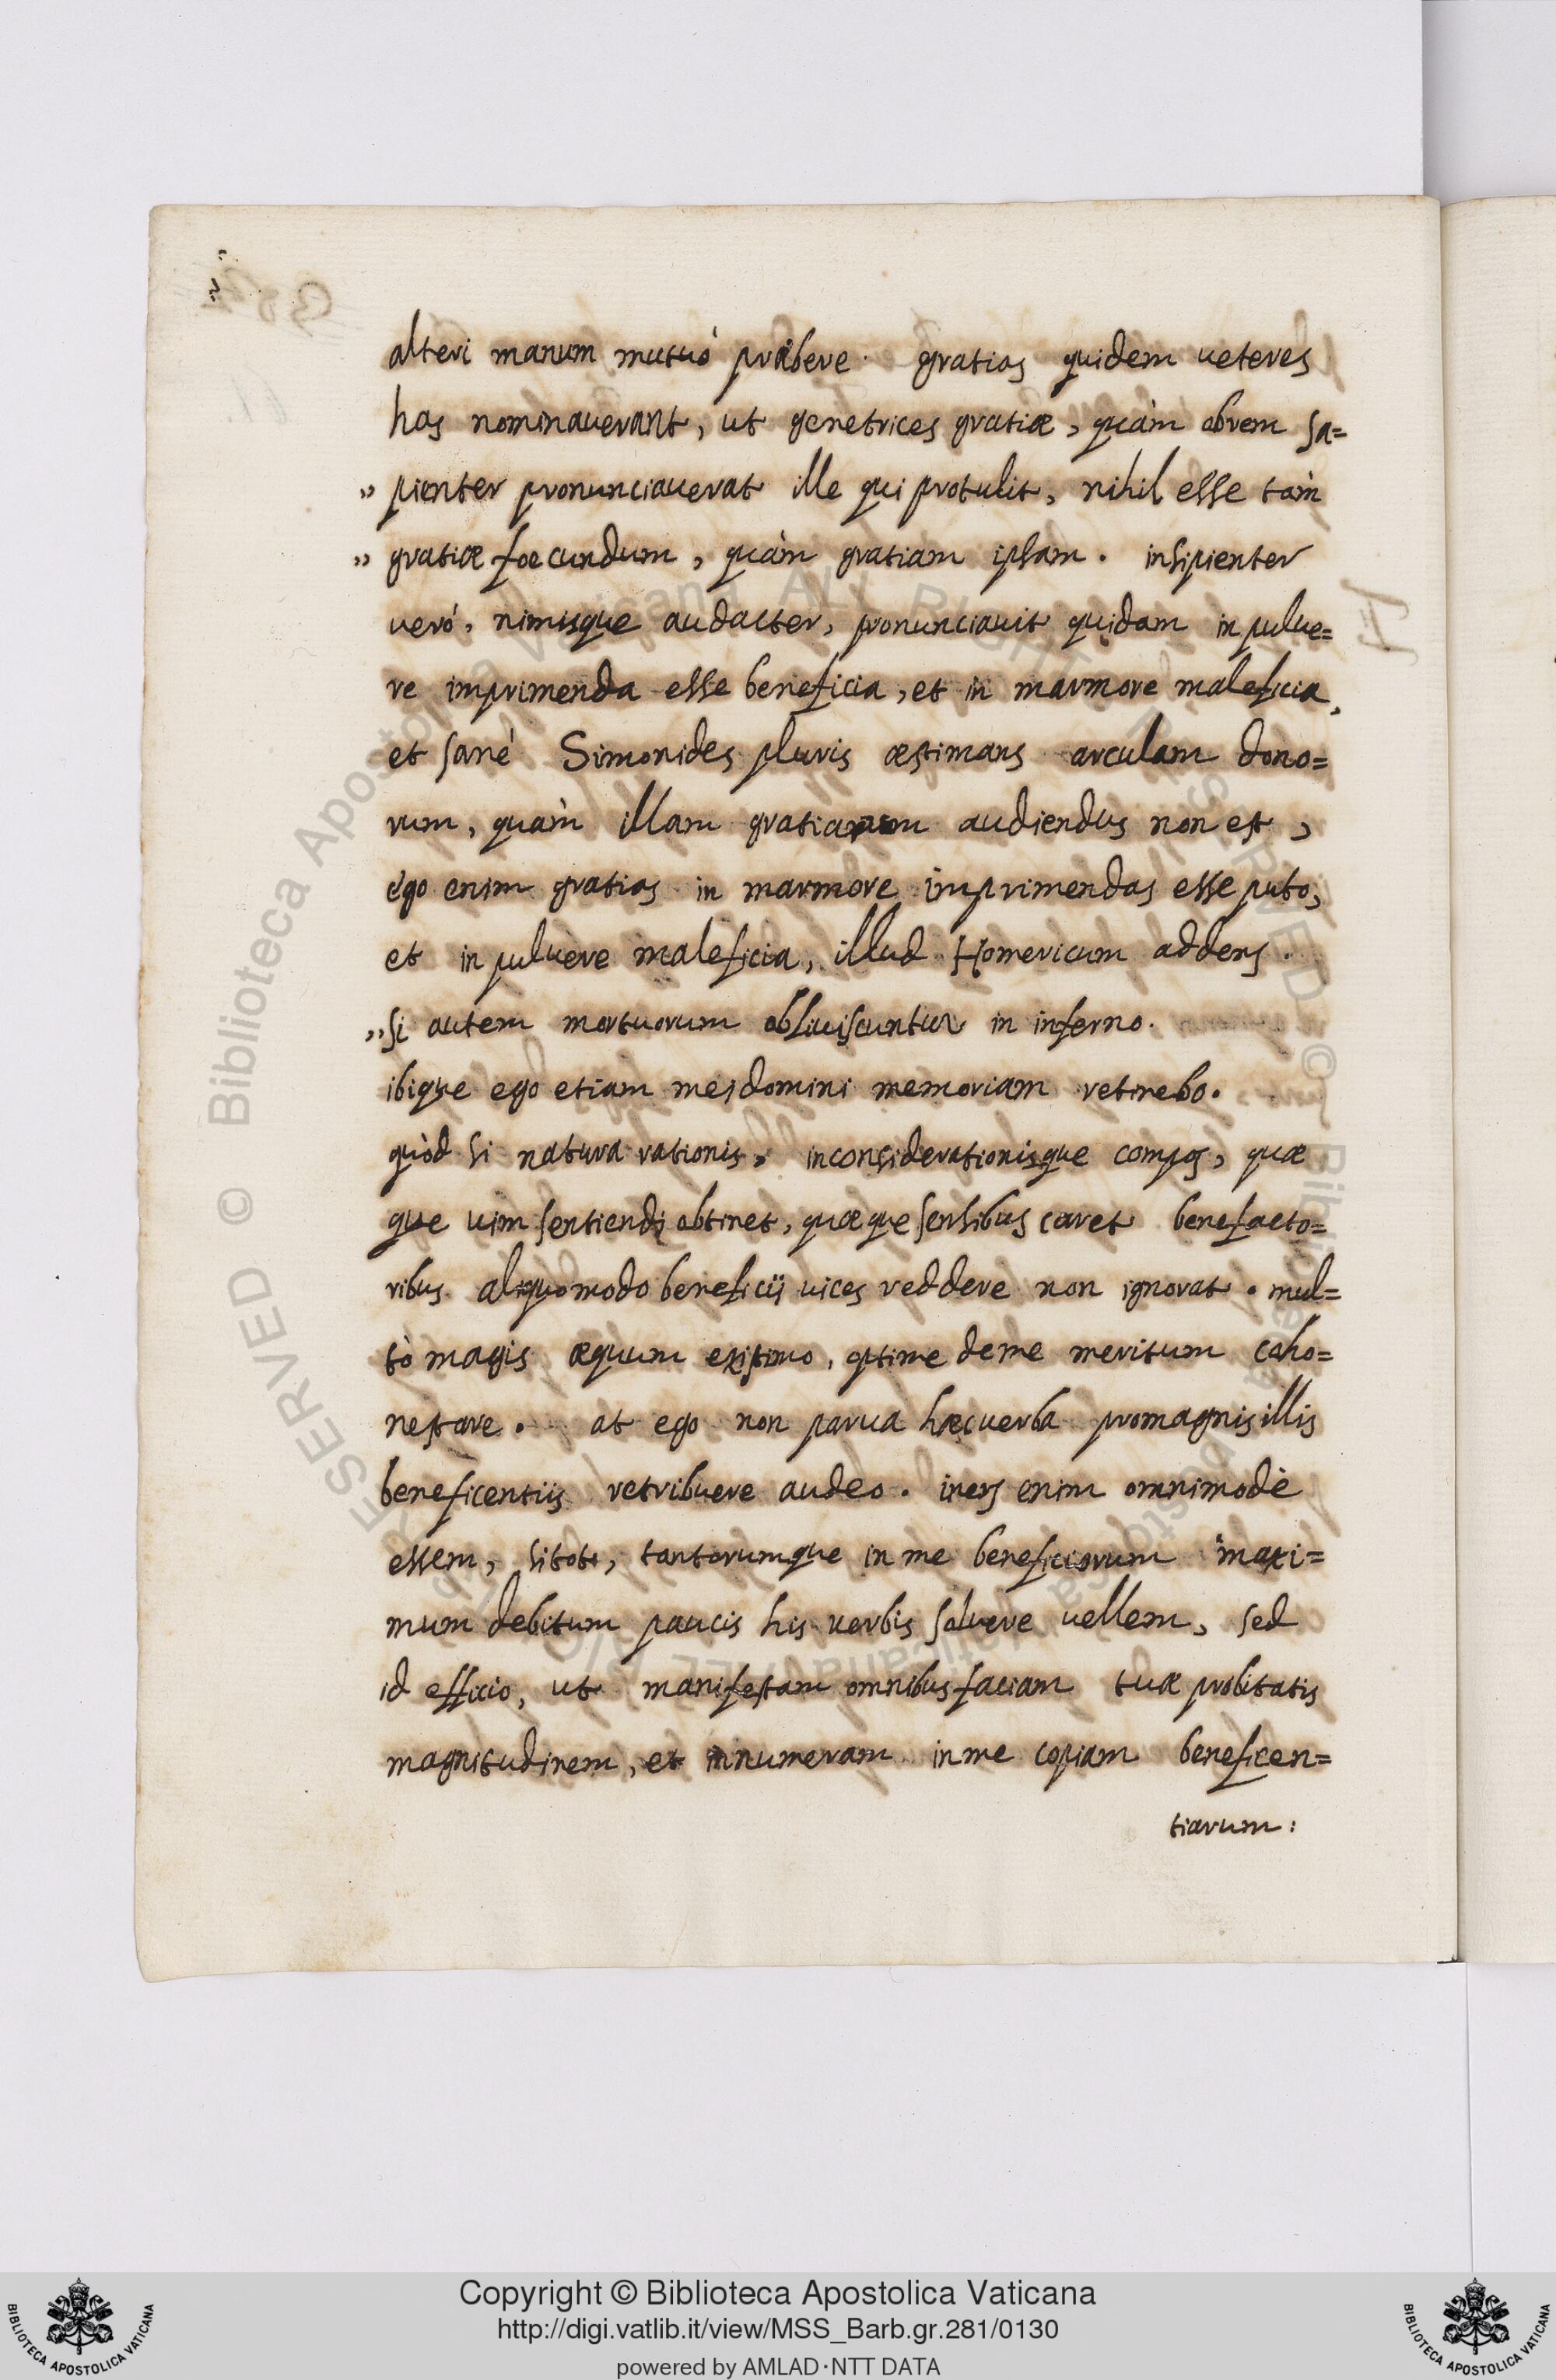 alteri manum mutuó præbere. gratias quidem ueteres
has nominauerant, ut genetrices gratiæ, quàm obrem sa=
„ pienter pronunciauerat ille qui protulit, nihil esse tàm
„ gratiæ foecundum, quàm gratiam ipsam. insipienter
veró, nimisque audacter, pronunciauit quidam in pulue=
re imprimenda esse beneficia, et in marmore maleficia,
et sanè Simonides pluris æstimans arculam dono=
rum, quàm illam gratiarum audiendus non est,
ego enim gratias in marmore imprimendas esse puto,
et in puluere maleficia, illud Homericum addens.
„ si autem mortuorum obliuiscuntur in inferno.
ibique ego etiam mei domini memoriam retinebo.
quòd si natura rationis, inconsiderationisque compos, quæ
que uim sentiendi obtinet, quæque sensibus caret benefacto=
ribus aliquomodo beneficii uices reddere non ignorat. mul=
tò magis æquum existimo, optime de me meritum coho=
nestare. at ego non parua hæc uerba pro magnis illis
beneficentiis retribuere audeo. iners enim omnimodè
essem, si tot, tantorumque in me beneficiorum maxi=
mum debitum paucis his verbis soluere uellem, sed
id efficio, ut manifestam omnibus faciam tuæ probitatis
magnitudinem, et innumeram in me copiam beneficen=
tiarum:
Copyright © Biblioteca Apostolica Vaticana
http://digi.vatlib.it/view/MSS_Barb.gr.281/0130
powered by AMLAD·NTT DATA
BIBLIOTECA APOSTOLICA VATICANA
BIBLIOTECA APOSTOLICA VATICANA